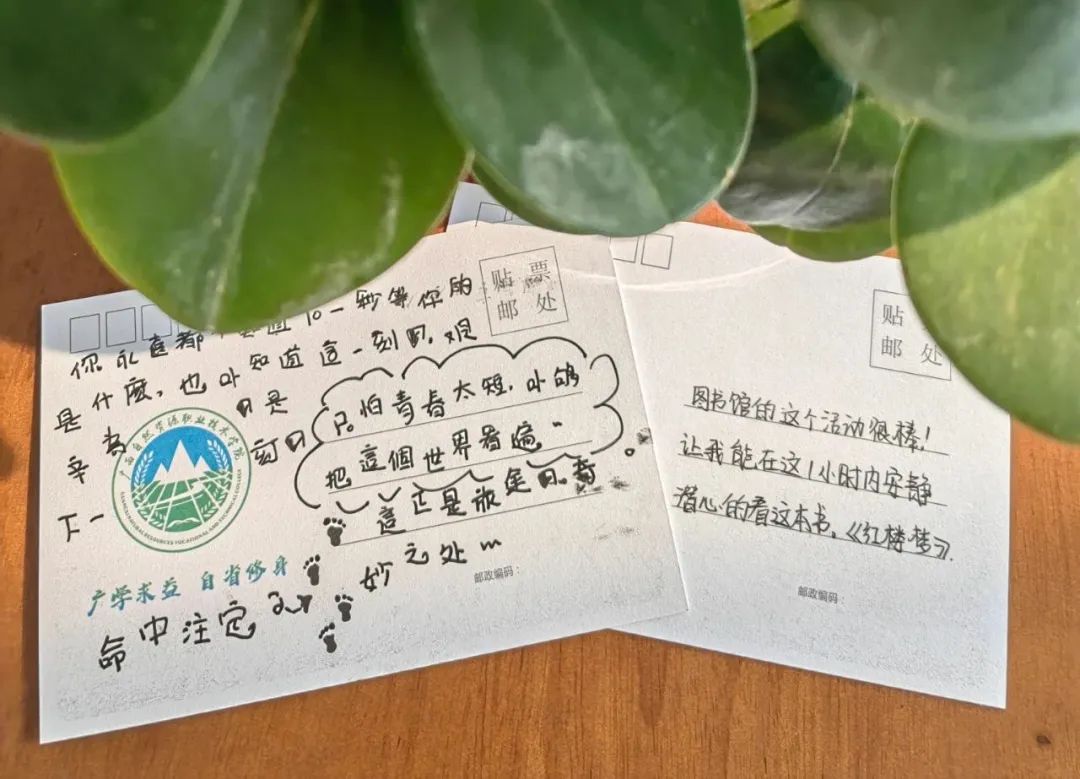 贴票
邮处
你永遠都不知道下一秒等你的
是什麼,也不知道這一刻的艰
辛 的是
下一 刻的
命中注定
只怕青春太短,不够
把這個世界看遍~
這正是旅途的奇
妙之处~
广西自然资源职业技术学院
产学求益 自省修身
邮政编码:
贴
邮处
图书馆的这个活动很棒!
让我能在这1小时内安静
潜心的看这本书,《红楼梦》.
邮政编码: